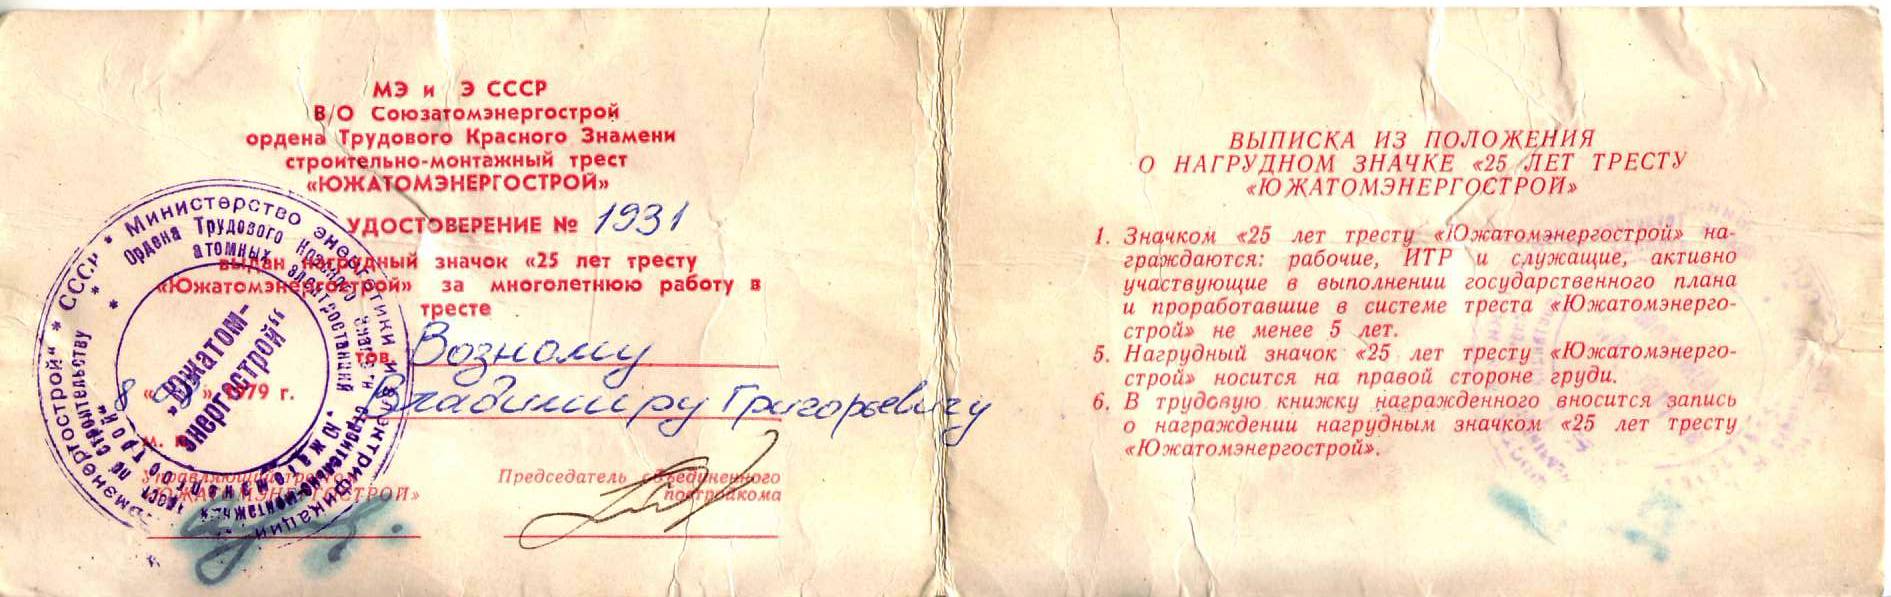 МЭ и Э СССР
В/О Союзатомэнергострой
ордена Трудового Красного Знамени
строительно-монтажный трест
«ЮЖАТОМЭНЕРГОСТРОЙ»
УДОСТОВЕРЕНИЕ № 1931
выдан нагрудный значок «25 лет тресту
«Южатомэнергострой» за многолетнюю работу в
тресте
тов. Возному
Владимиру Григорьевичу
8 « » 1979 г.
м. п.
Управляющий трестом
«ЮЖАТОМЭНЕРГОСТРОЙ»
Председатель объединенного
постройкома
* Министерство энергетики и электрификации СССР *
Ордена Трудового Красного Знамени
атомных электростанций
„Южатом-
энергострой“
ВЫПИСКА ИЗ ПОЛОЖЕНИЯ
О НАГРУДНОМ ЗНАЧКЕ «25 ЛЕТ ТРЕСТУ
«ЮЖАТОМЭНЕРГОСТРОЙ»
1. Значком «25 лет тресту «Южатомэнергострой» на-
граждаются: рабочие, ИТР и служащие, активно
участвующие в выполнении государственного плана
и проработавшие в системе треста «Южатомэнерго-
строй» не менее 5 лет.
5. Нагрудный значок «25 лет тресту «Южатомэнерго-
строй» носится на правой стороне груди.
6. В трудовую книжку награжденного вносится запись
о награждении нагрудным значком «25 лет тресту
«Южатомэнергострой».